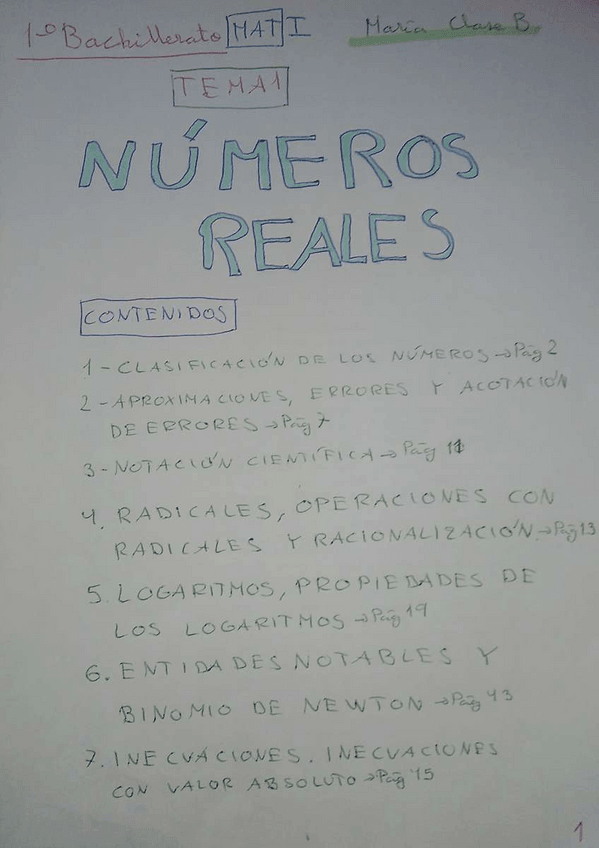 1º Bachillerato MAT I María Clase B.
TEMA 1
NÚMEROS
REALES
CONTENIDOS
1-CLASIFICACIÓN DE LOS NÚMEROS→Pág 2
2-APROXIMACIONES, ERRORES Y ACOTACIÓN
DE ERRORES→Pág 7
3-NOTACIÓN CIENTÍFICA→Pág 11
4. RADICALES, OPERACIONES CON
RADICALES Y RACIONALIZACIÓN→Pág 13
5. LOGARITMOS, PROPIEDADES DE
LOS LOGARITMOS→Pág 19
6. ENTIDADES NOTABLES Y
BINOMIO DE NEWTON→Pág 43
7. INECUACIONES. INECUACIONES
CON VALOR ABSOLUTO→Pág 15
1